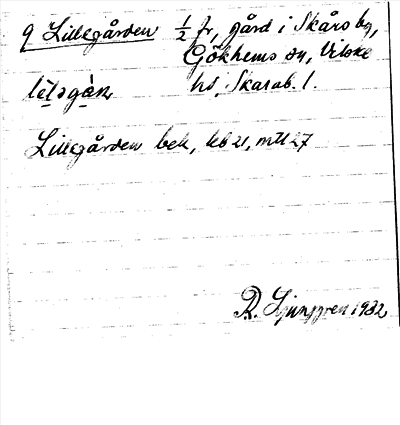 9 Lillegården ½ fr, gård i Skårs by,
Gökhems sn, Vilske
hd, Skarab. l.
Lillegården bek, leb 21, mtl 27
R. Ljunggren 1932